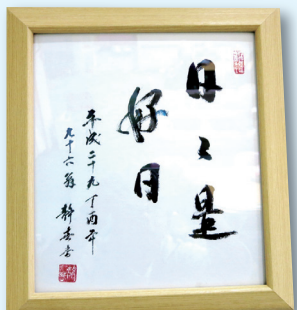 日々是
好日
平成二十九丁酉年
九十六翁 静香書